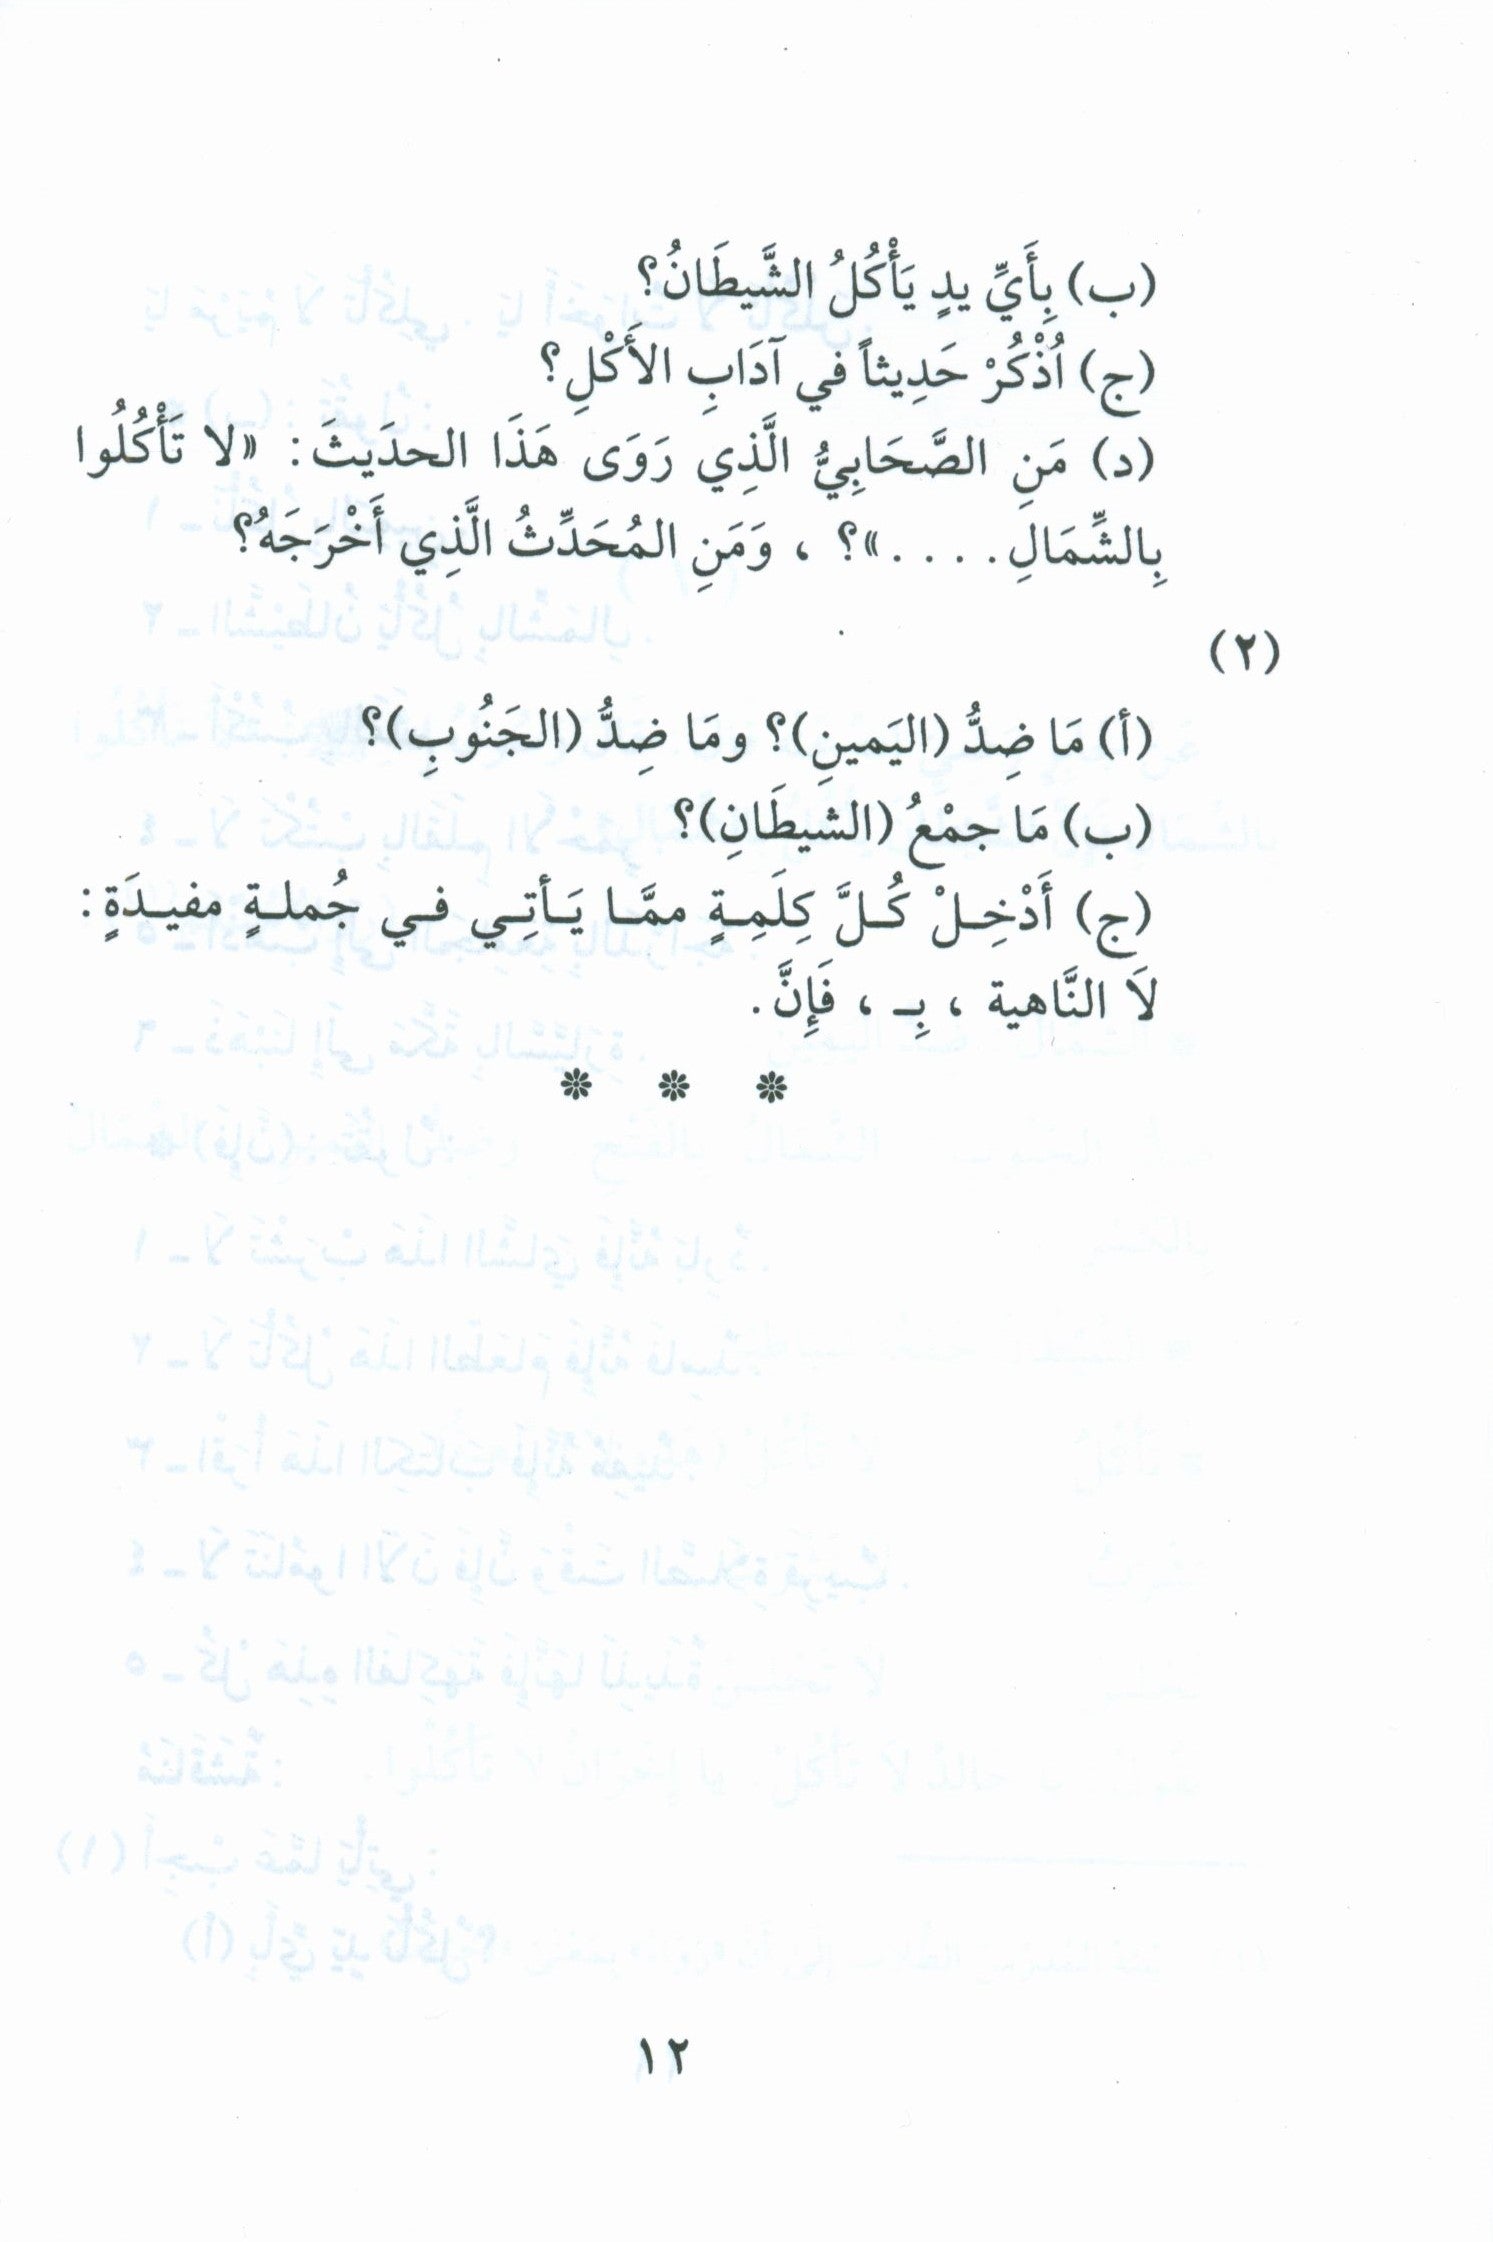 (ب) بِأَيِّ يدٍ يَأْكُلُ الشَّيطَانُ؟
(ج) اُذْكُرْ حَدِيثاً في آدَابِ الأَكْلِ؟
(د) مَنِ الصَّحَابِيُّ الَّذِي رَوَى هَذَا الحدَيثَ: «لا تَأْكُلُوا
بِالشِّمَالِ. . . .»؟ ، وَمَنِ المُحَدِّثُ الَّذِي أَخْرَجَهُ؟
(٢)
(أ) مَا ضِدُّ (اليَمينِ)؟ ومَا ضِدُّ (الجَنُوبِ)؟
(ب) مَا جمْعُ (الشيطَانِ)؟
(ج) أَدْخِلْ كُلَّ كِلَمِةٍ ممَّا يَأتِي في جُملةٍ مفيدَةٍ:
لاَ النَّاهية ، بِـ ، فَإِنَّ.
١٢